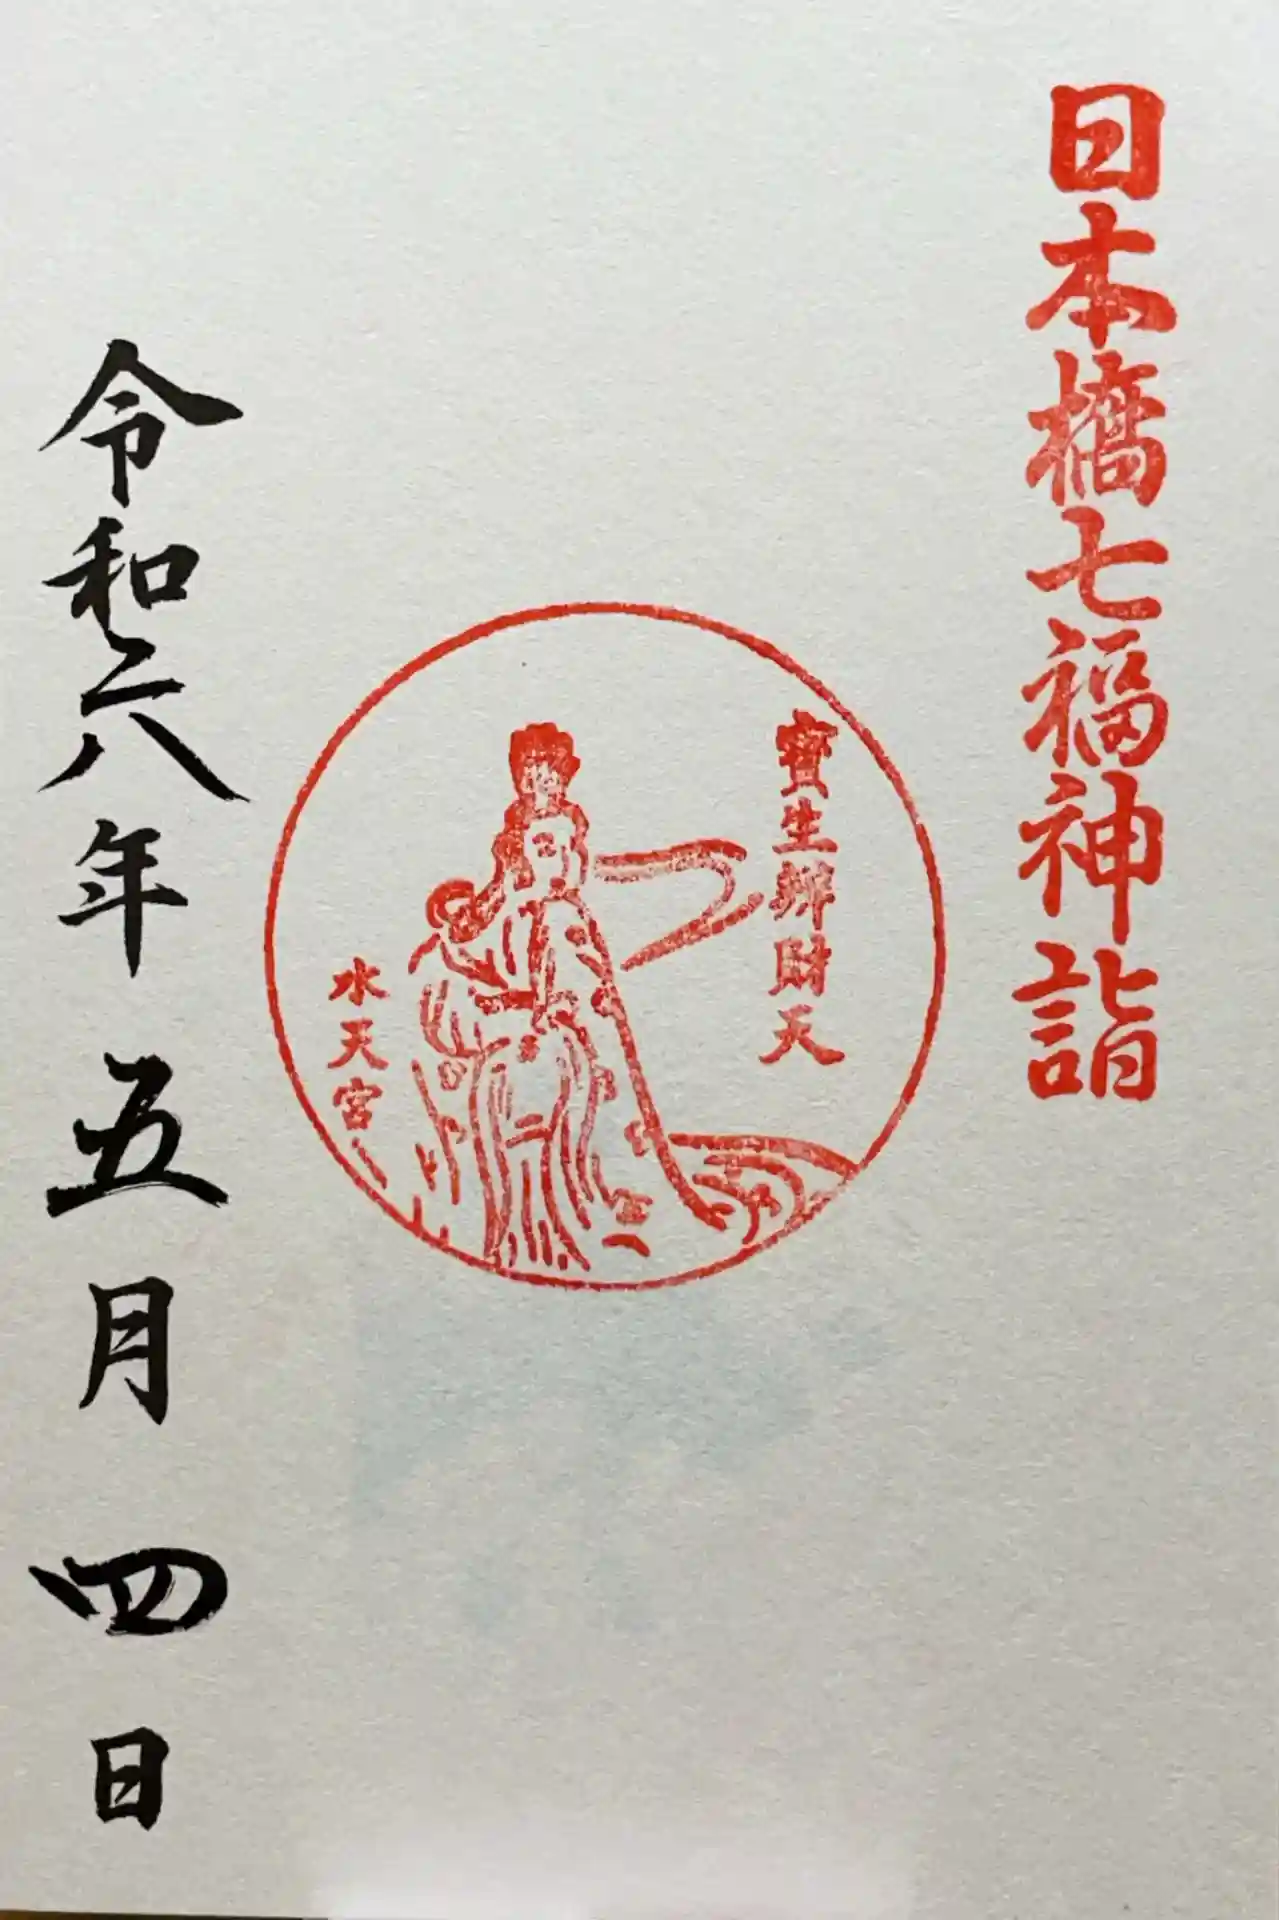 日本橋七福神詣
寶生辨財天
水天宮
令和六年五月四日